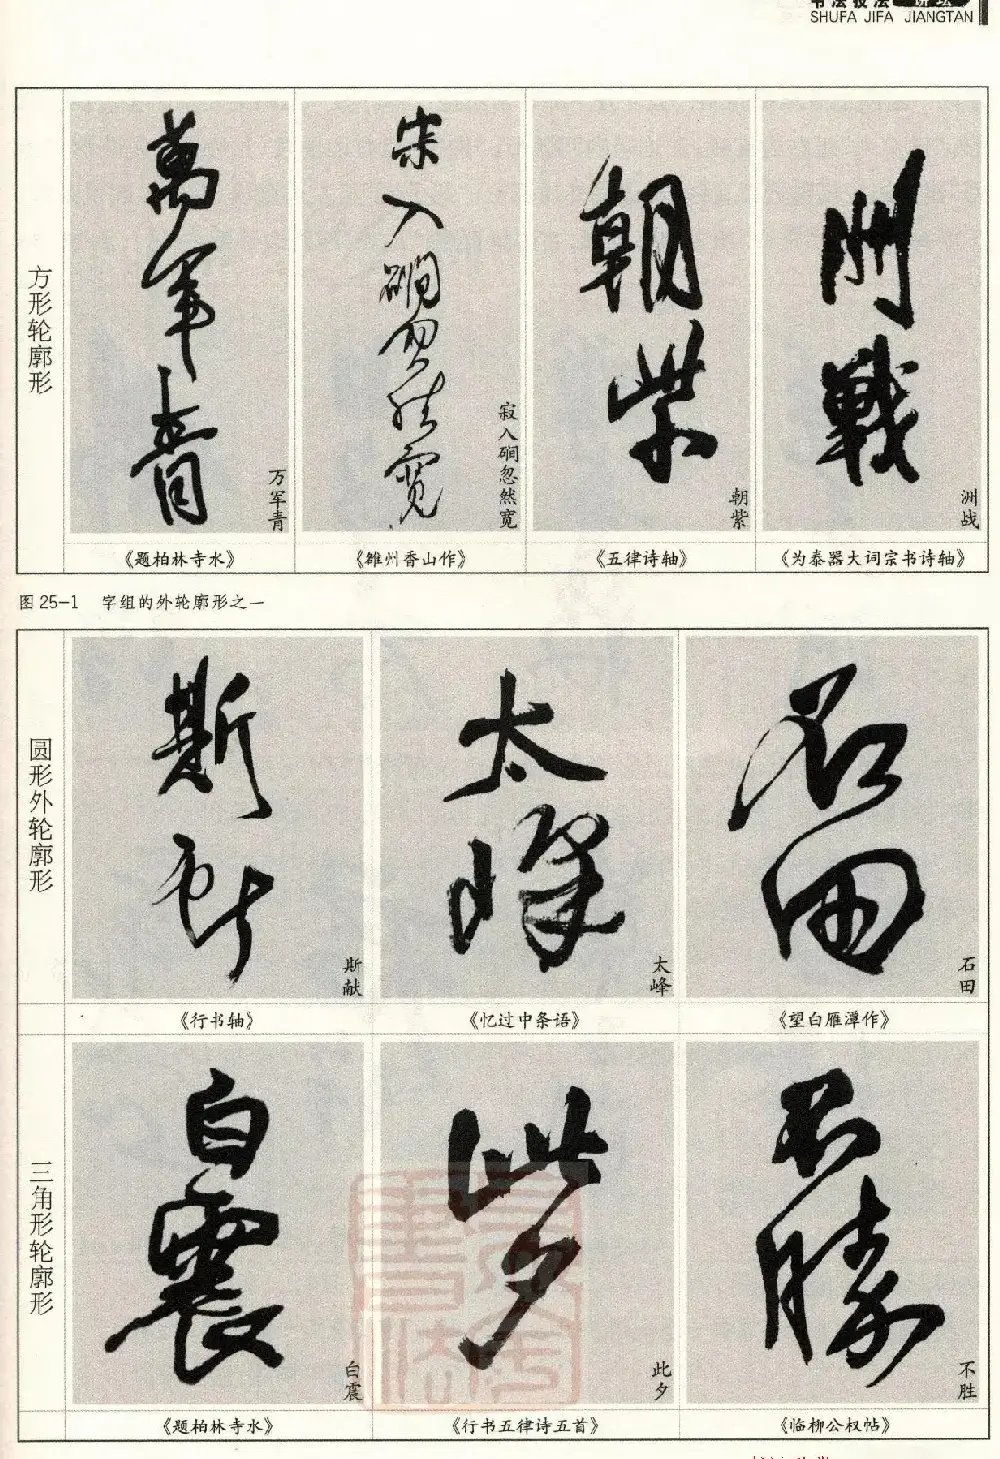 书法技法
SHUFA JIFA JIANGTAN
方形轮廓形
万军青
寂入硐忽然宽
朝紫
洲战
《题柏林寺水》
《雒州香山作》
《五律诗轴》
《为泰器大词宗书诗轴》
图 25-1 字组的外轮廓形之一
圆形外轮廓形
斯献
太峰
石田
《行书轴》
《忆过中条语》
《望白雁潭作》
三角形轮廓形
白震
此夕
不胜
《题柏林寺水》
《行书五律诗五首》
《临柳公权帖》